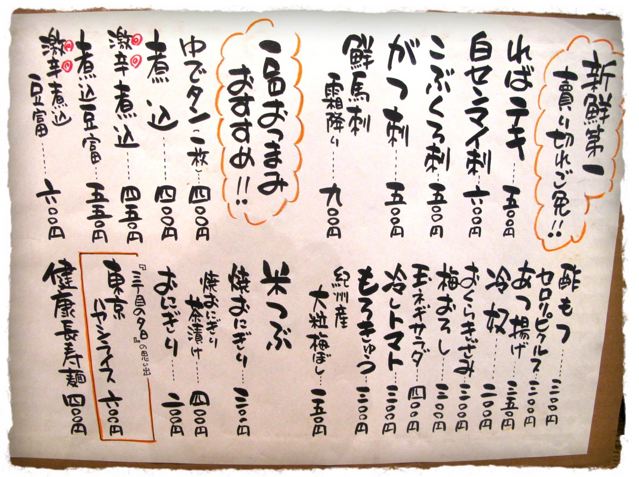 新鮮第一
賣り切れご免!!
ればテキ……五〇〇円
白センマイ刺……六〇〇円
こぶくろ刺……五五〇円
がつ刺……五〇〇円
鮮馬刺
霜降り……九〇〇円
一品おつまみ
おすすめ!!
ゆでタン 二枚…四〇〇円
煮込……四〇〇円
激辛煮込……四五〇円
煮込豆富……五五〇円
激辛煮込
豆富……六〇〇円
酢もつ……三〇〇円
セロリピクルス……三〇〇円
あつ揚げ……三五〇円
冷奴……三〇〇円
おくらきざみ……三〇〇円
梅おろし……三〇〇円
玉ネギサラダ……四〇〇円
冷しトマト……三〇〇円
もろきゅう……三〇〇円
紀州産
大粒梅ぼし……一五〇円
米つぶ
焼おにぎり……三〇〇円
焼おにぎり
茶漬け……四〇〇円
おにぎり……二〇〇円
『三丁目の夕日』の思い出
東京
ハヤシライス 六〇〇円
健康長寿麺 四〇〇円